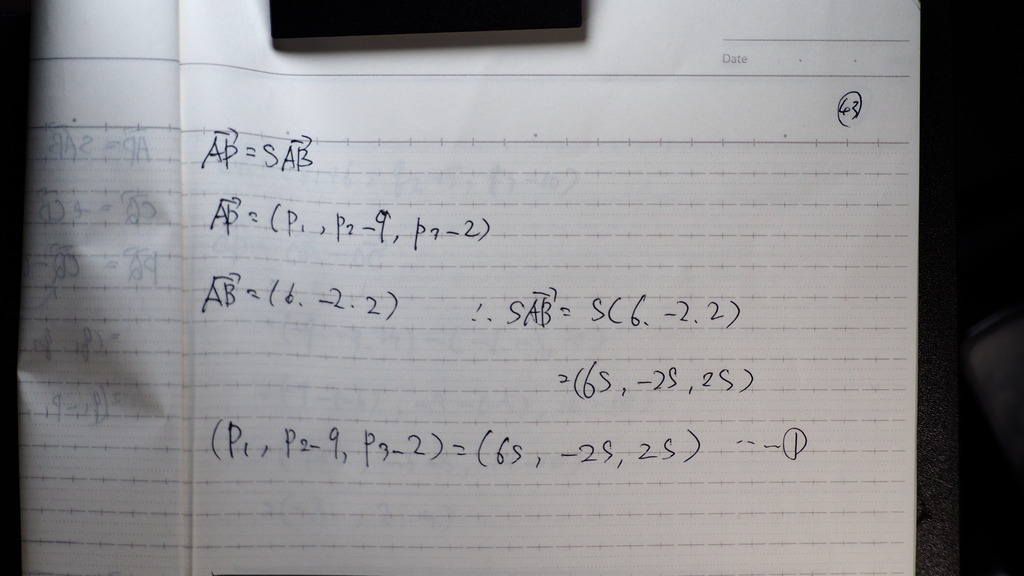 Date
㊸
AP⃗ = SAB⃗
AP⃗ = (P₁, P₂-9, P₃-2)
AB⃗ = (6. -2. 2) ∴ SAB⃗ = S(6. -2. 2)
=(6S, -2S, 2S)
(P₁, P₂-9, P₃-2) = (6S, -2S, 2S) ···-①